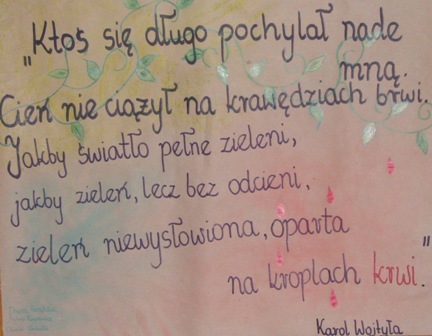 "Ktoś się długo pochylał nade
mną.
Cień nie ciążył na krawędziach brwi.
Jakby światło pełne zieleni,
jakby zieleń, lecz bez odcieni,
zieleń niewysłowiona, oparta
na kroplach krwi."
Karol Wojtyła